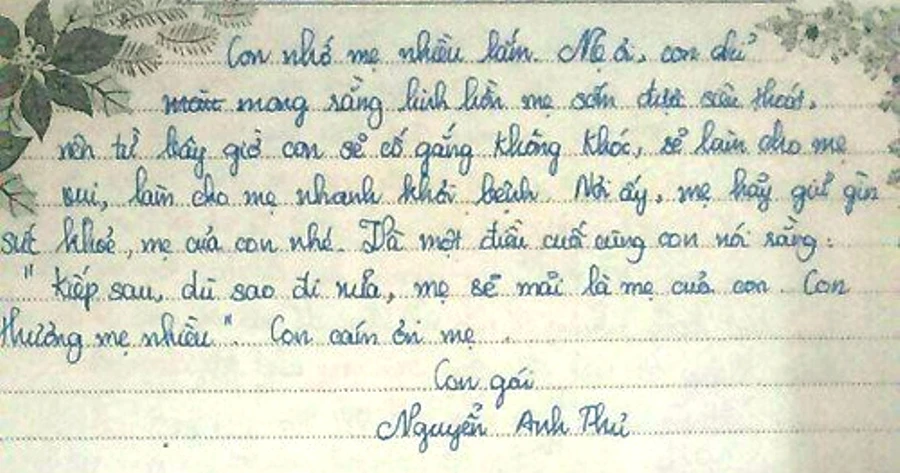 Con nhớ mẹ nhiều lắm. Mẹ ơi, con chỉ
mong rằng linh hồn mẹ sớm được siêu thoát,
nên từ bây giờ con sẽ cố gắng không khóc, sẽ làm cho mẹ
vui, làm cho mẹ nhanh khỏi bệnh. Nơi ấy, mẹ hãy giữ gìn
sức khoẻ, mẹ của con nhé. Và một điều cuối cùng con nói rằng:
"kiếp sau, dù sao đi nữa, mẹ sẽ mãi là mẹ của con. Con
thương mẹ nhiều". Con cám ơn mẹ
Con gái
Nguyễn Anh Thư